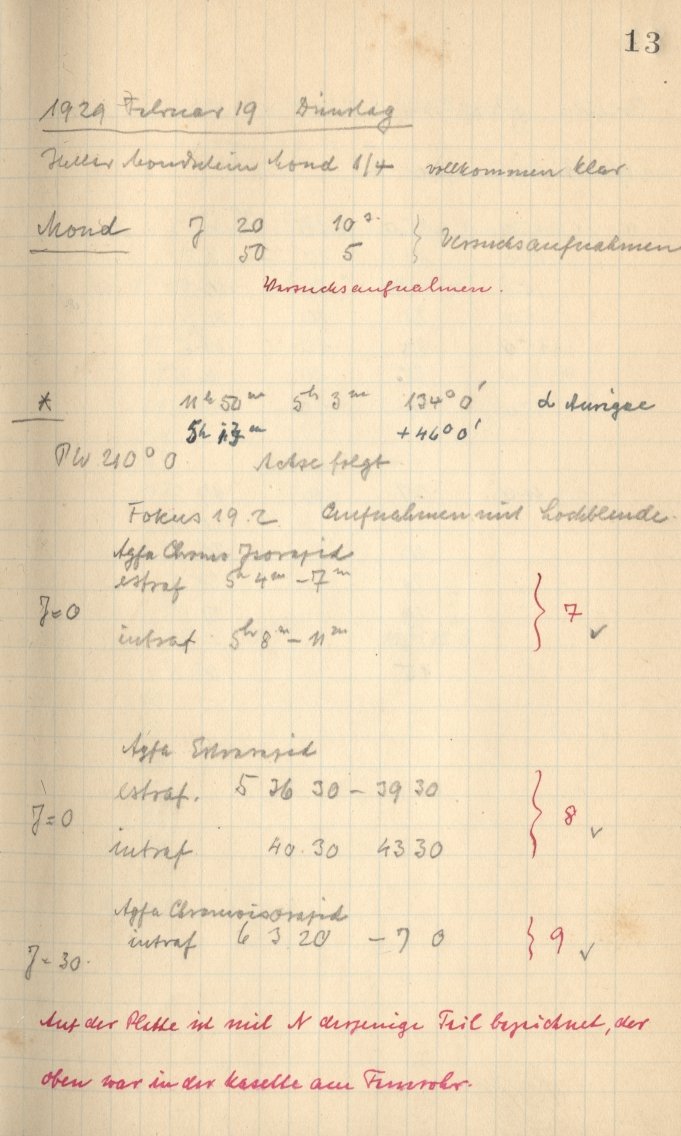 13
1929 Februar 19 Dienstag
Heller Mondschein Mond 1/4 vollkommen klar
Mond J 20 10s. } Versuchsaufnahmen
50 5
Versuchsaufnahmen.
* 11h 50m 5h 3m 134° 0' α Aurigae
5h m +46° 0'
PW 210° 0 Achse folgt
Fokus 19.2 Aufnahmen mit Lochblende.
Agfa Chromo Isorapid
extraf 5h 4m – 7m
J=0 } 7 ✓
intraf 5h 8m – 11m
Agfa Extrarapid
extraf. 5 36 30 – 39 30
J=0 } 8 ✓
intraf 40.30 43 30
Agfa Chromoisorapid
intraf 6 3 20 – 7 0 } 9 ✓
J=30.
Auf der Platte ist mit N derjenige Teil bezeichnet, der
oben war in der Kasette am Fernrohr.